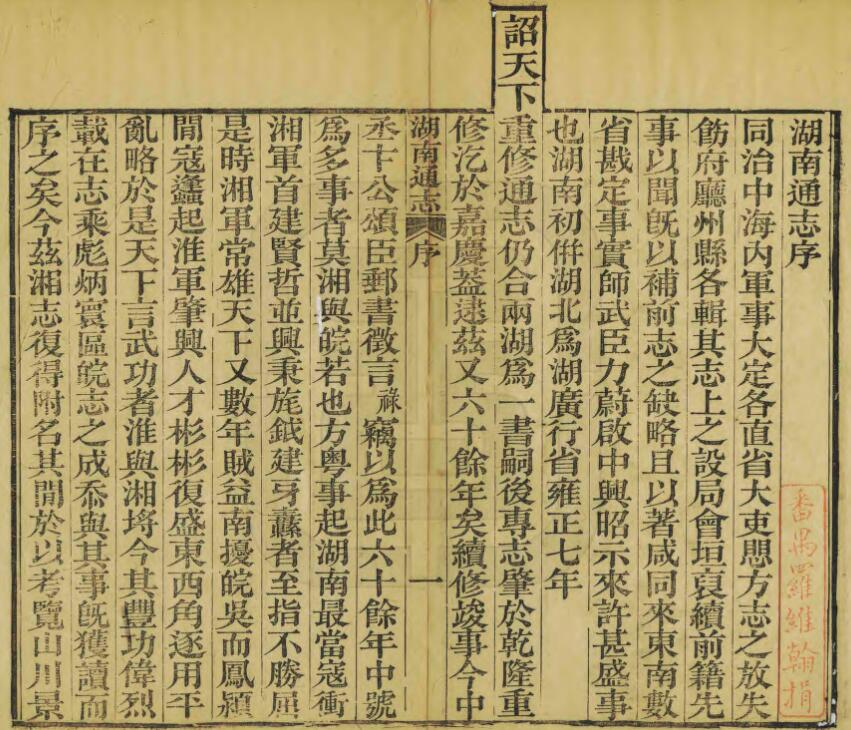 湖南通志序
同治中海内軍事大定各直省大吏思方志之放失
飭府廳州縣各輯其志上之設局會垣裒續前籍先
事以聞旣以補前志之缺略且以著咸同來東南數
省戡定事實師武臣力蔚啟中興昭示來許甚盛事
也湖南初倂湖北爲湖廣行省雍正七年
詔天下重修通志仍合兩湖爲一書嗣後專志肇於乾隆重
修汔於嘉慶葢逮茲又六十餘年矣續修竣事今中
湖南通志 序 一
丞卞公頌臣郵書徵言祿竊以爲此六十餘年中號
爲多事者莫湘與皖若也方粵事起湖南最當寇衝
湘軍首建賢哲並興秉旄鉞建牙纛者至指不勝屈
是時湘軍常雄天下又數年賊益南擾皖吳而鳳潁
閒寇蠭起淮軍肇興人才彬彬復盛東西角逐用平
亂略於是天下言武功者淮與湘埒今其豐功偉烈
載在志乘彪炳寰區皖志之成忝與其事旣獲讀而
序之矣今茲湘志復得附名其閒於以考覽山川景
番禺羅維翰捐